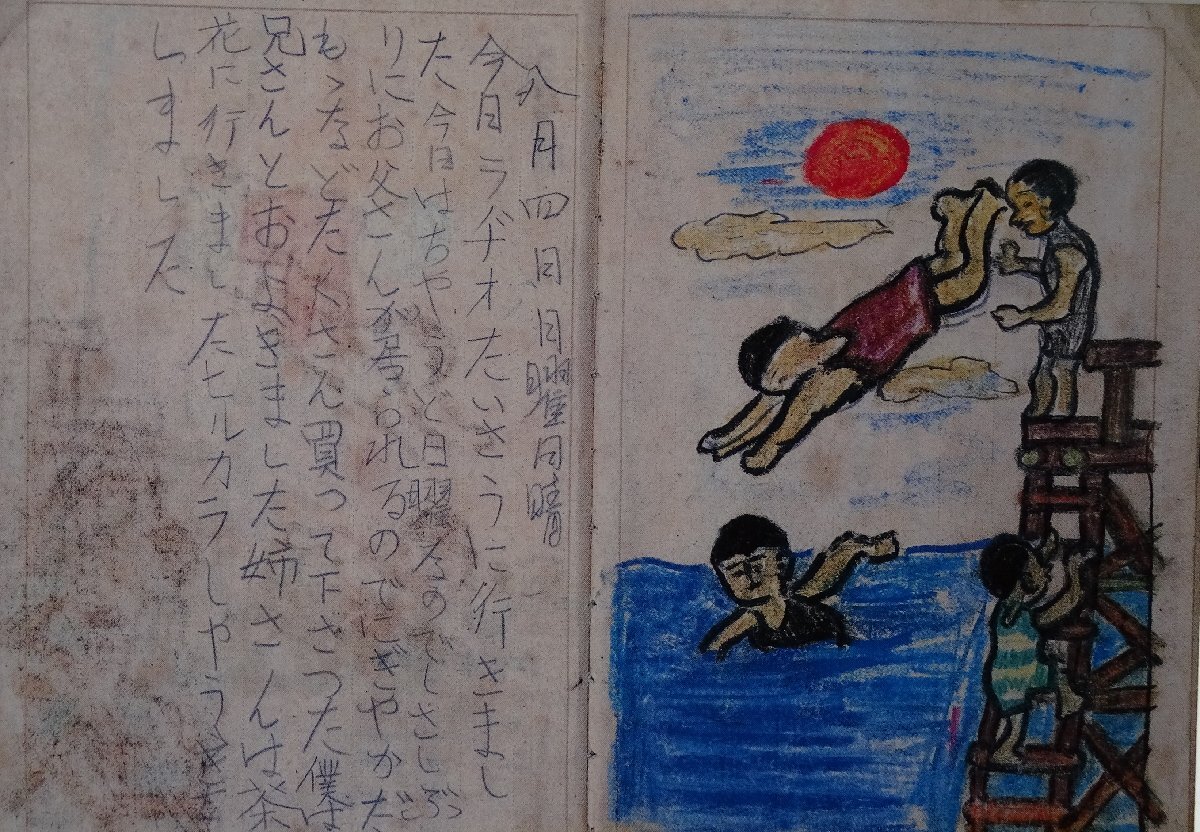 八月四日日曜日晴
今日ラヂオたいさうに行きまし
た今日はちやうど日曜なのでしさしぶ
りにお父さんが居られるのでにぎやかだ
もゝなどたくさん買つて下さつた僕は
兄さんとおよぎました姉さんは茶
花に行きましたヒルカラしやうぎ
しました